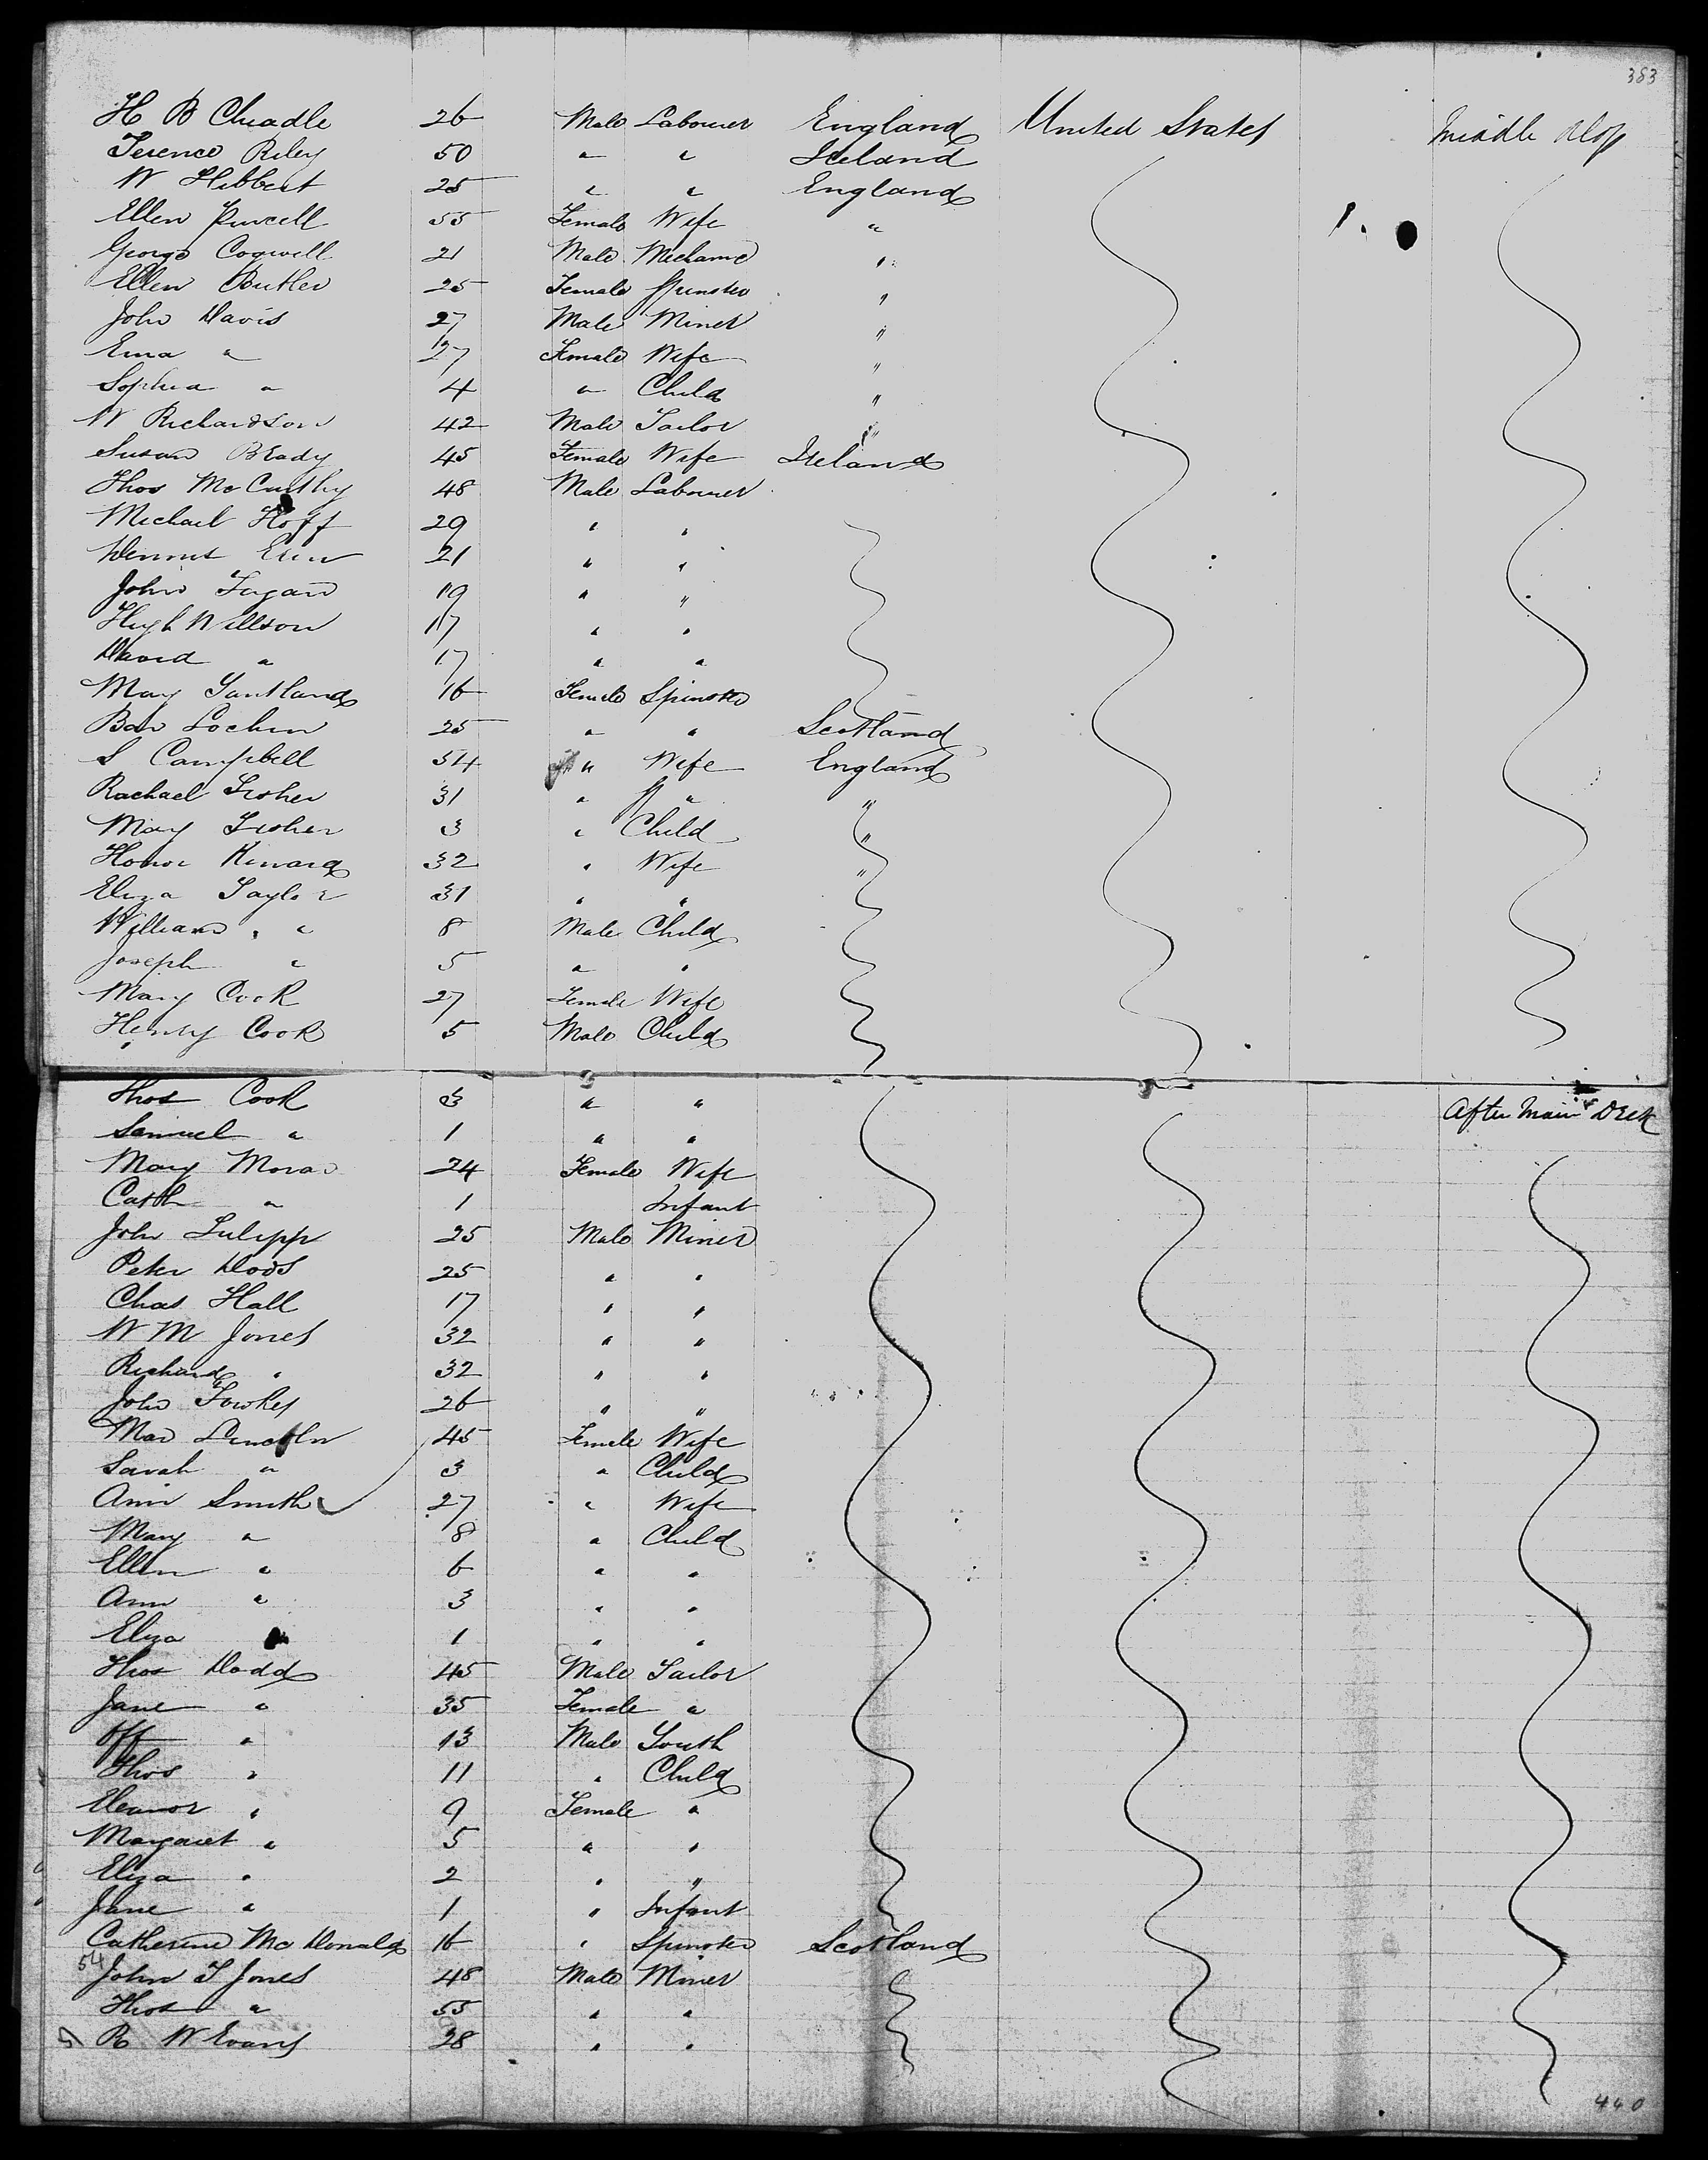 383
H B Cheadle 26 Male Labourer England United States Middle
Terence Riley 50 " " Ireland
W Hibbert 25 " " England
Ellen Purcell 55 Female Wife "
George Cogwell 21 Male Mechanic "
Ellen Butler 25 Female Spinster "
John Davis 27 Male Miner "
Ema " 27 Female Wife "
Sophia " 4 " Child "
W Richardson 42 Male Tailor "
Susan Brady 45 Female Wife Ireland
Thos McCarthy 48 Male Labourer
Michael Hoff 29 " "
Dennis 21 " "
John Fagan 19 " "
Hugh Willson 17 " "
David " 17 " "
Mary 16 Female Spinster
Lochen 25 " " Scotland
S Campbell 54 " Wife England
Rachael Fisher 31 " " "
Mary Fisher 3 " Child "
Honor 32 " Wife "
Eliza Taylor 31 " "
William " 8 Male Child
Joseph " 5 " "
Mary Cook 27 Female Wife
Henry Cook 5 Male Child
Thos Cook 3 " " After Main Deck
Samuel " 1 " "
Mary Moran 24 Female Wife
Cath " 1 Infant
John 25 Male Miner
Peter Dods 25 " "
Chas Hall 17 " "
W M Jones 32 " "
Richard " 32 " "
John Fowkes 26 " "
Mar Lincoln 45 Female Wife
Sarah " 3 " Child
Ann Smith 27 " Wife
Mary " 8 " Child
Ellen " 6 " "
Ann " 3 " "
Eliza 1 " "
Thos Dodd 45 Male Tailor
Jane " 35 Female "
" 13 Male Youth
Thos " 11 " Child
Eleanor " 9 Female "
Margaret " 5 " "
Eliza " 2 " "
Jane " 1 " Infant
Catherine McDonald 16 " Spinster Scotland
54 John T Jones 48 Male Miner
Thos " 55 " "
R W Evans 28 " "
440